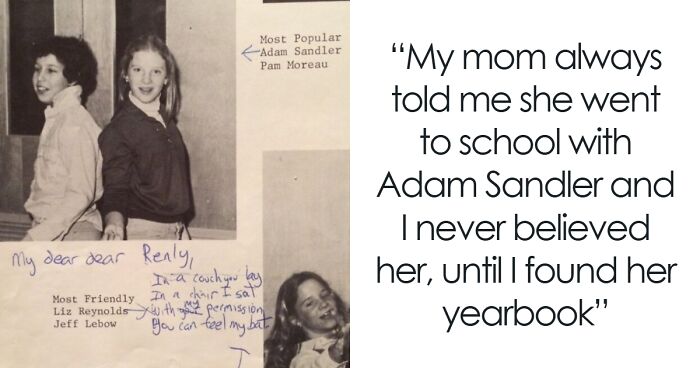 Most Popular
Adam Sandler
Pam Moreau
My dear dear Renly,
In a couch you lay
In a chair I sat
with my permission
You can feel my bat
Most Friendly
Liz Reynolds
Jeff Lebow
“My mom always
told me she went
to school with
Adam Sandler and
I never believed
her, until I found her
yearbook”